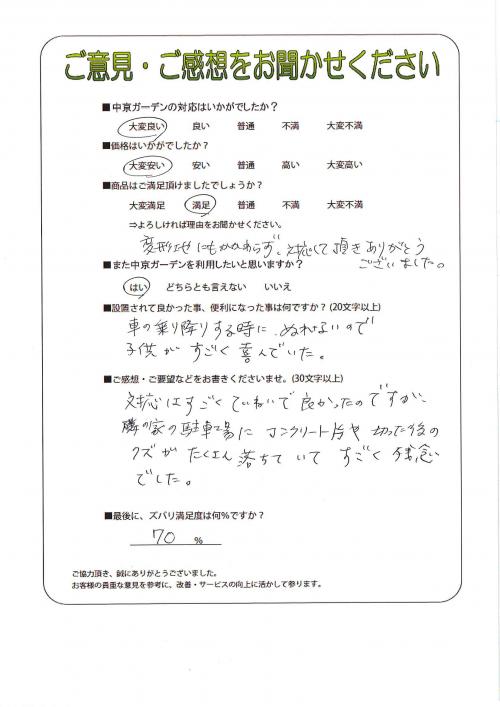 ご意見・ご感想をお聞かせください
■中京ガーデンの対応はいかがでしたか?
大変良い 良い 普通 不満 大変不満
■価格はいかがでしたか?
大変安い 安い 普通 高い 大変高い
■商品はご満足頂けましたでしょうか?
大変満足 満足 普通 不満 大変不満
⇒よろしければ理由をお聞かせください。
変形地にもかかわらず、対応して頂きありがとう
ございました。
■また中京ガーデンを利用したいと思いますか?
はい どちらとも言えない いいえ
■設置されて良かった事、便利になった事は何ですか?(20文字以上)
車の乗り降りする時に、ぬれないので
子供がすごく喜んでいた。
■ご感想・ご要望などをお書きくださいませ。(30文字以上)
対応はすごくていねいで良かったのですが、
隣の家の駐車場にコンクリート片や切った後の
クズがたくさん落ちていてすごく残念
でした。
■最後に、ズバリ満足度は何%ですか?
70 %
ご協力頂き、誠にありがとうございました。
お客様の貴重な意見を参考に、改善・サービスの向上に活かして参ります。